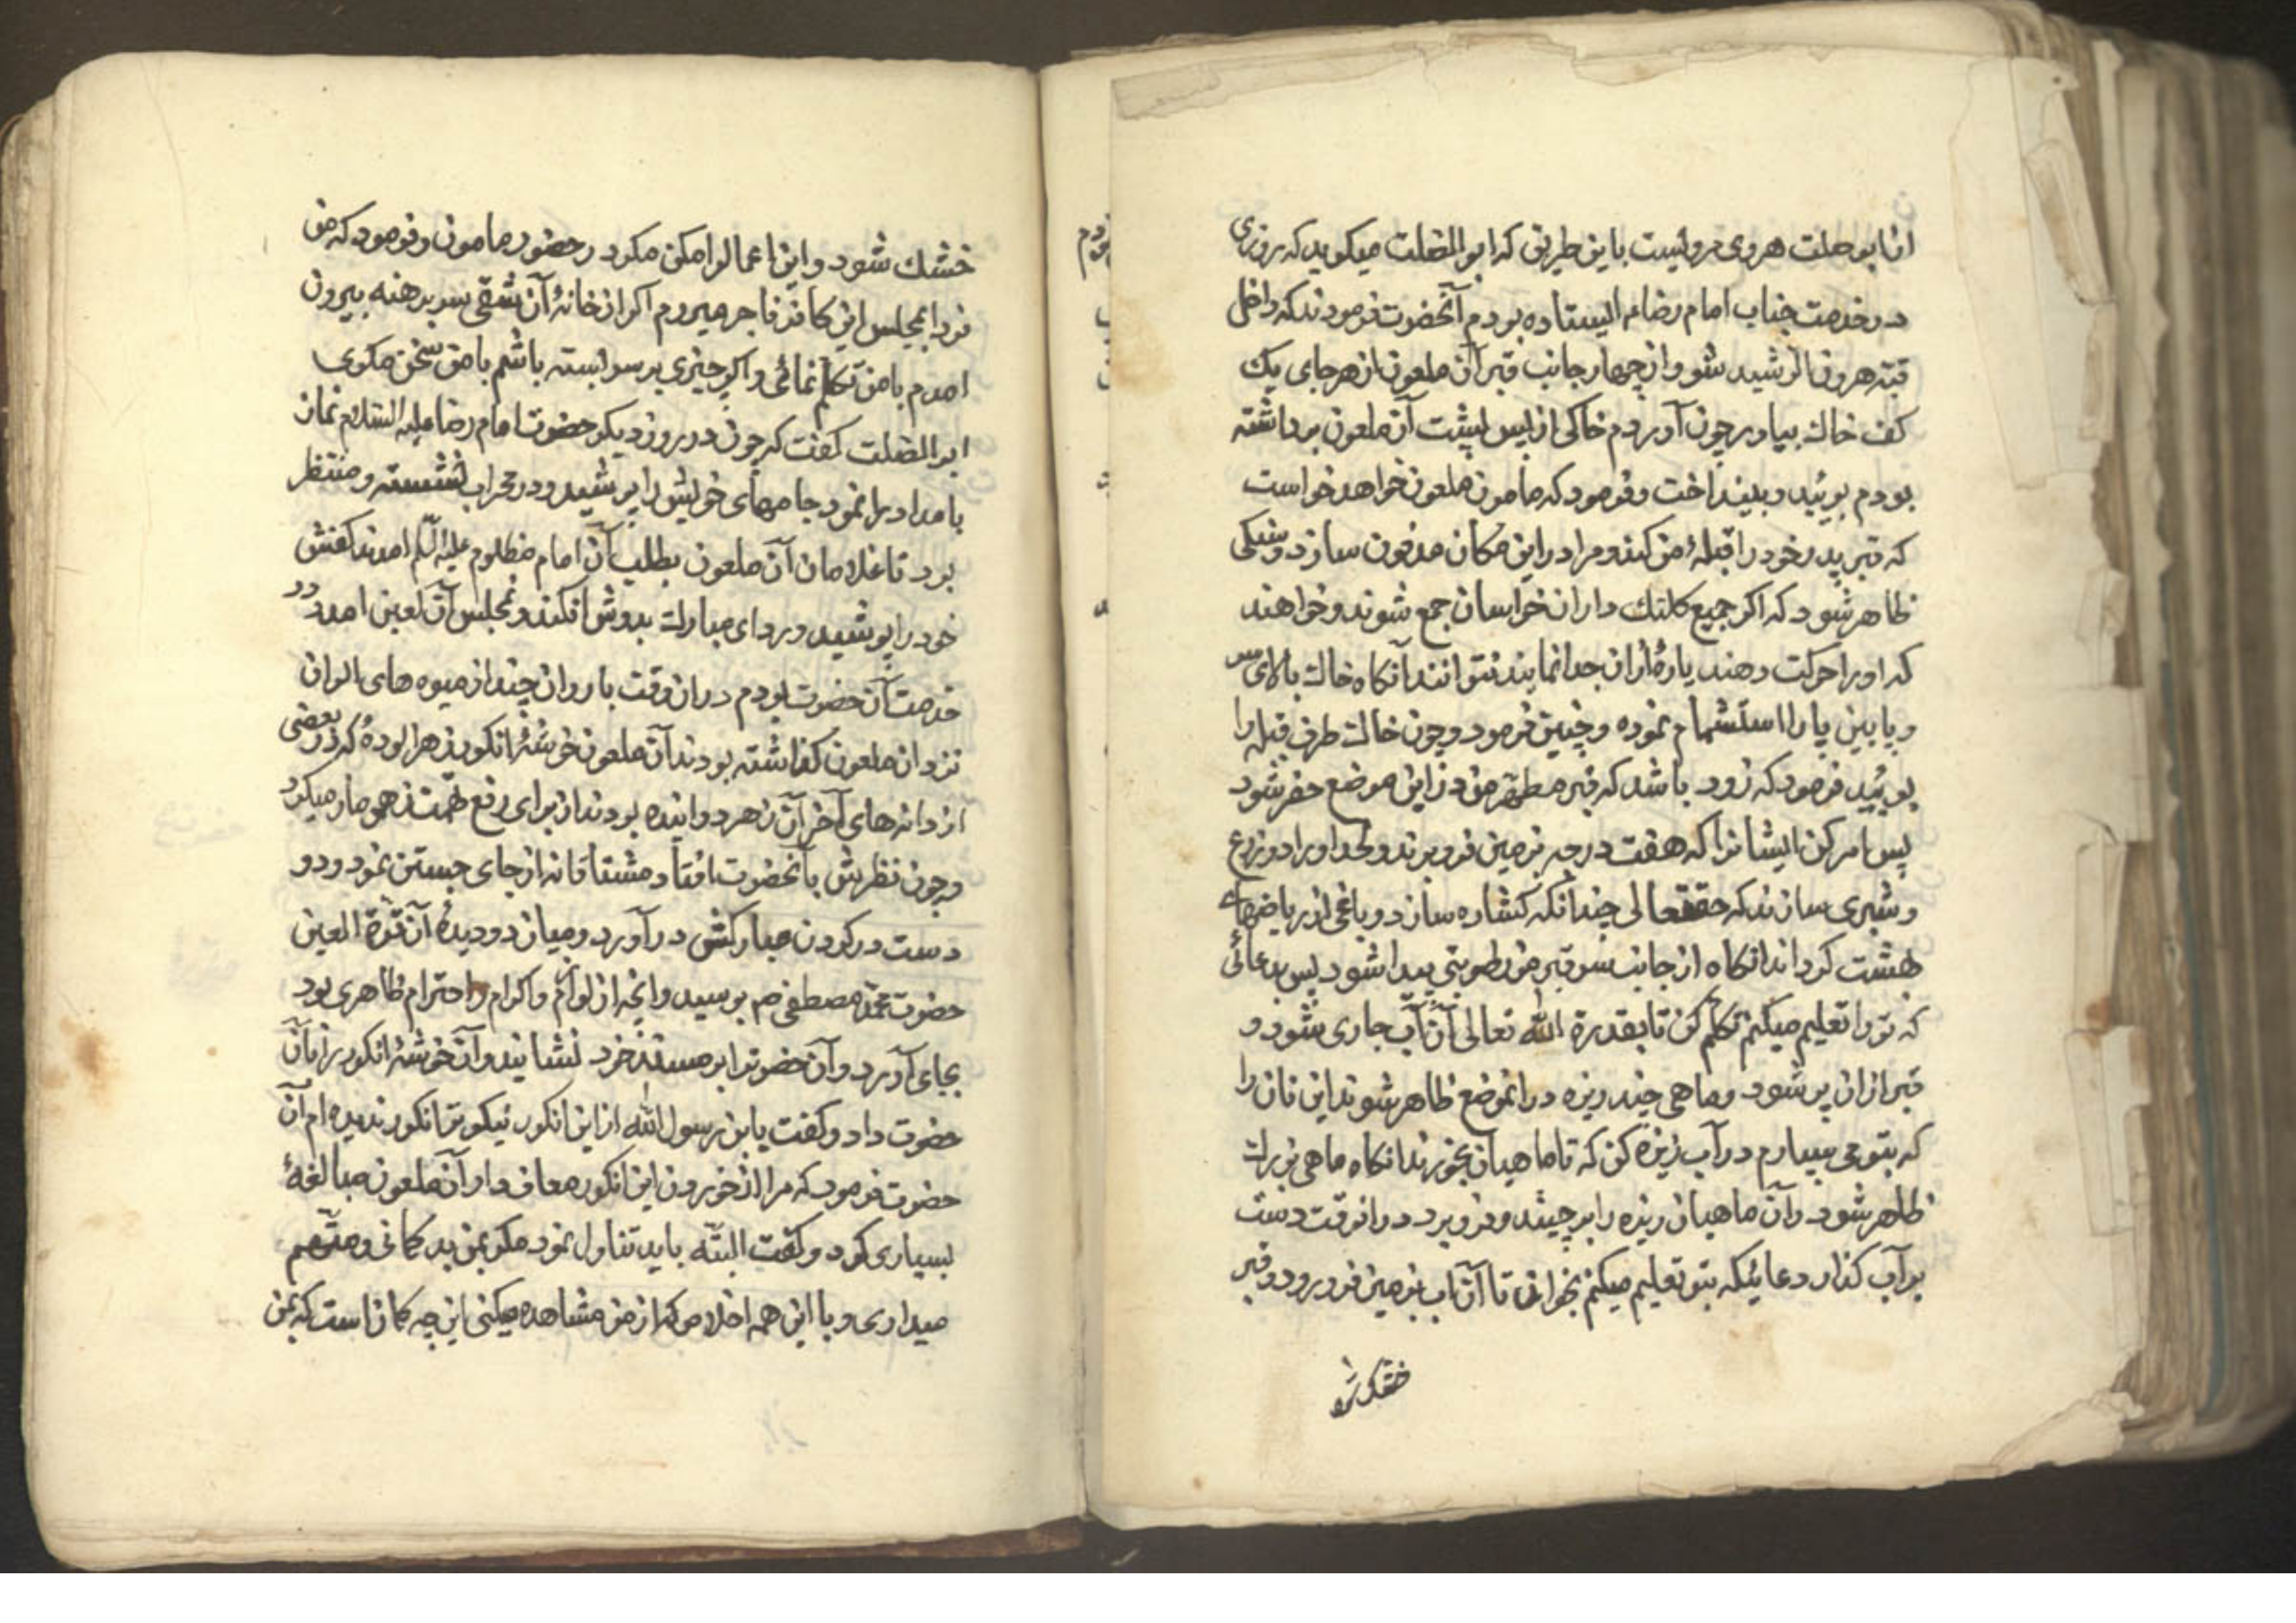 از ابو صلت هروی مرولیست باین طریق که ابوالصلت میکوید که روزی
در خدمت جناب امام رضا ع الیستاده بودم آنحضرت فرمودند که داخل
قبّه هرون الرشید شو و از چهار جانب قبر آن ملعون از هر جای یک
کف خاک بیاور چون آوردم خاکی از پس پشت آن ملعون برداشته
بودم بوئید و بینداخت و فرمود که مامون ملعون خواهد خواست
که قبر پدر خود را قبلهٔ من کند و مرا در این مکان مدفون سازد و سنکی
ظاهر شود که اکر جمیع کلنک داران خراسان جمع شوند و خواهند
که او را حرکت دهند یا پارهٔ از ان جدا نمایند نتوانند آنکاه خاک بالای سر
و پایین پا را استشمام نموده و چنین فرمود و چون خاک طرف قبله را
بوئید فرمود که زود باشد که قبر مطهّر من در این موضع حفر شود
پس امر کن ایشانرا که هفت درجه بزمین فرو برند و لحد او را دو زرع
و شبری سازند که حقتعالی چندانکه کشاده سازد و باغی از ریاضهای
بهشت کرداند انکاه از جانب سر قبر من رطوبتی پیدا شود پس بدعائی
که تو را تعلیم میکنم تکلم کن تا بقدرة الله تعالی آن آب جاری شود و
قبر از ان پر شود و ماهی چند ریزه در انموضع ظاهر شوند این نان را
که بتو می سپارم در آب ریزه کن که تا ماهیان بخورند انکاه ماهی بزرک
ظاهر شود و آن ماهیان ریزه را برچیند و فرو برد در انوقت دست
بر آب کذار و دعائیکه بتو تعلیم میکنم بخوان تا آن آب بزمین فرو رود و قبر
خشک شو
خشك شود و این اعمال را مکن مکر در حضور مامون و فرمود که من
فردا بمجلس این کافر فاجر میروم اکر از خانهٔ آن شقی سر برهنه بیرون
امدم با من تکلم نمائی و اکر چیزی بر سر بسته باشم با من سخن مکوی
ابوالصلت کفت که چون در روز دیکر حضرت امام رضا علیه السلام نماز
بامداد را نمود جامهای خویش را پوشید و در محراب نشسته و منتظر
بود تا غلامان آن ملعون بطلب آن امام مظلوم علیه السلام امدند کفش
خود را پوشید و ردای مبارک بدوش افکند و بمجلس آن لعین امد و در
خدمت آن حضرت بودم در ان وقت با روان چند از میوه های الوان
نزد ان ملعون کذاشته بودند آن ملعون خوشهٔ انکور زهر الوده که در بعضی
از دانه های آخر آن زهر دوانیده بودند از برای رفع تهمت زهر مار میکرد
و چون نظرش بآنحضرت افتاد مشتاقانه از جای جستن نمود و دو
دست در کردن مبارکش در آورد و میان دو دیدهٔ آن قرّة العین
حضرت محمّد مصطفی ص بوسید و انچه از لوازم و اکرام و احترام ظاهری بود
بجای آورد و آن حضرت را بر مسند خود نشانید و آن خوشهٔ انکور را بآن
حضرت داد و کفت یا بن رسول الله از این انکور نیکو تر انکور ندیده ام آن
حضرت فرمود که مرا از خوردن این انکور معاف دار آن ملعون مبالغهٔ
بسیاری کرد و کفت البتّه باید تناول نمود مکر بمن بد کمانی و متّهم
میداری و با این همه اخلاص که از من مشاهده میکنی این چه کمان است که بمن